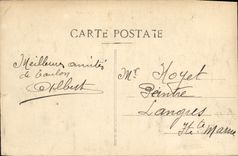 CARTE POSTALE
Meilleures amitiés
de Toulon
Mr Noyet
Peintre
Langres
Hte Marne